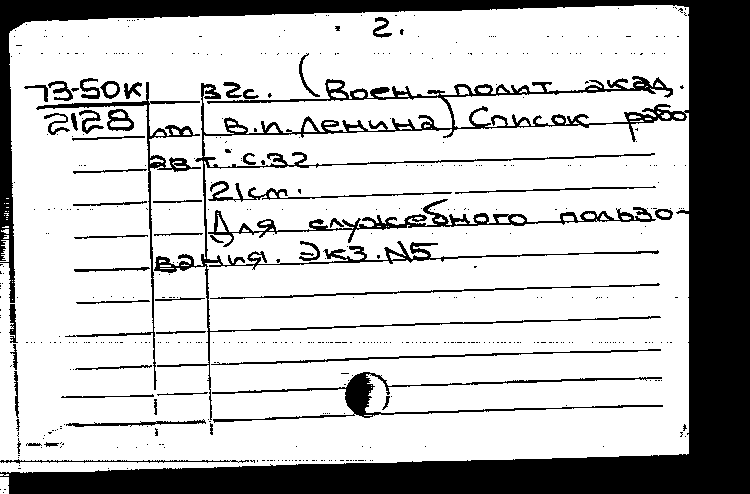 2.
73-50К 32с. (Воен.-полит. акад.
2128 им. В.И. Ленина) Список рабо
авт.: с.32.
21см.
Для служебного пользо-
вания. Экз. N5.